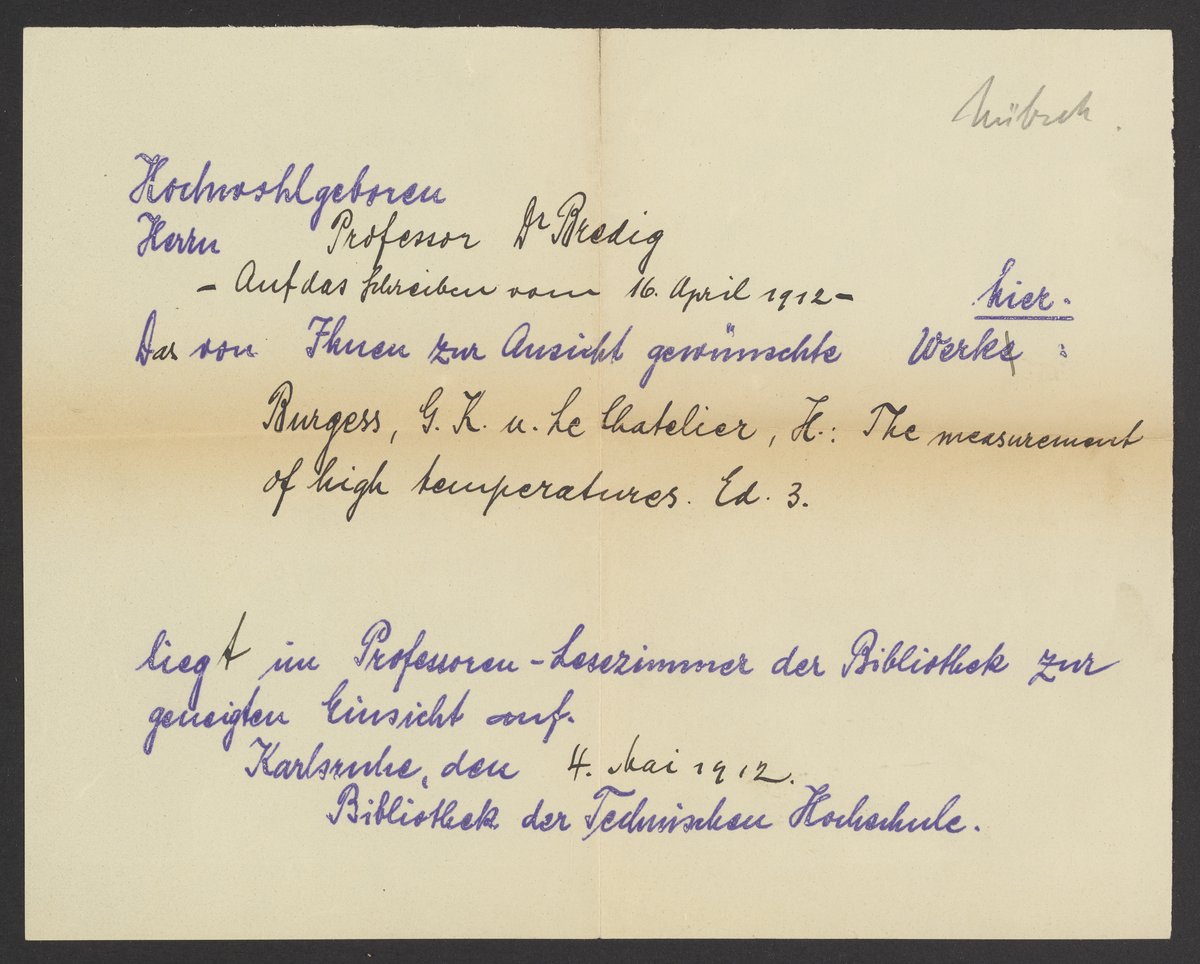 Hübsch.
Hochwohlgeboren
Herrn Professor Dr Bredig
- Auf das Schreiben vom 16. April 1912 -
hier.
Das von Ihnen zur Ansicht gewünschte Werk :
Burgess, G. K. u. Le Chatelier, H.: The measurement
of high temperatures. Ed. 3.
liegt im Professoren-Lesezimmer der Bibliothek zur
geneigten Einsicht auf.
Karlsruhe, den 4. Mai 1912.
Bibliothek der Technischen Hochschule.